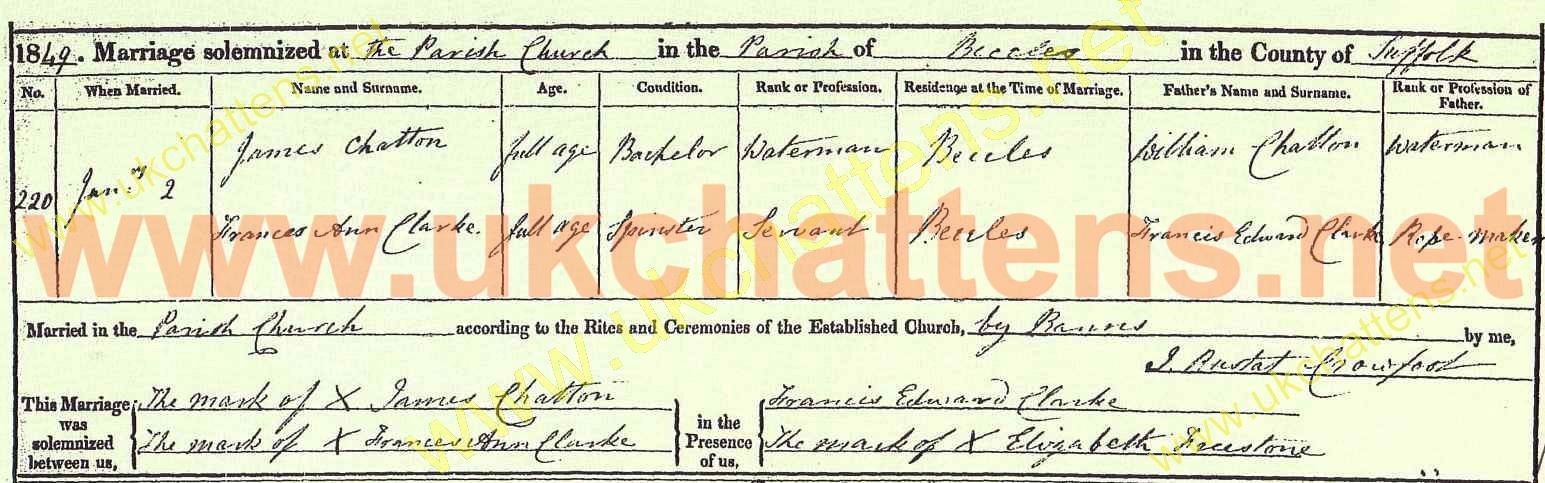 1849. Marriage solemnized at the Parish Church in the Parish of Beccles in the County of Suffolk
No. When Married. Name and Surname. Age. Condition. Rank or Profession. Residence at the Time of Marriage. Father's Name and Surname. Rank or Profession of Father.
James Chatton full age Bachelor Waterman Beccles William Chatton Waterman
220 Jan.ry 2
Frances Ann Clarke. full age Spinster Servant Beccles Francis Edward Clarke Rope-maker
www.ukchattens.net
Married in the Parish Church according to the Rites and Ceremonies of the Established Church, by Banns by me,
J. Rustat Crowfoot
This Marriage was solemnized between us, The mark of X James Chatton in the Presence of us, Francis Edward Clarke
The mark of X Frances Ann Clarke The mark of X Elizabeth Freestone
www.ukchattens.net
www.ukchattens.net
www.ukchattens.net
www.ukchattens.net